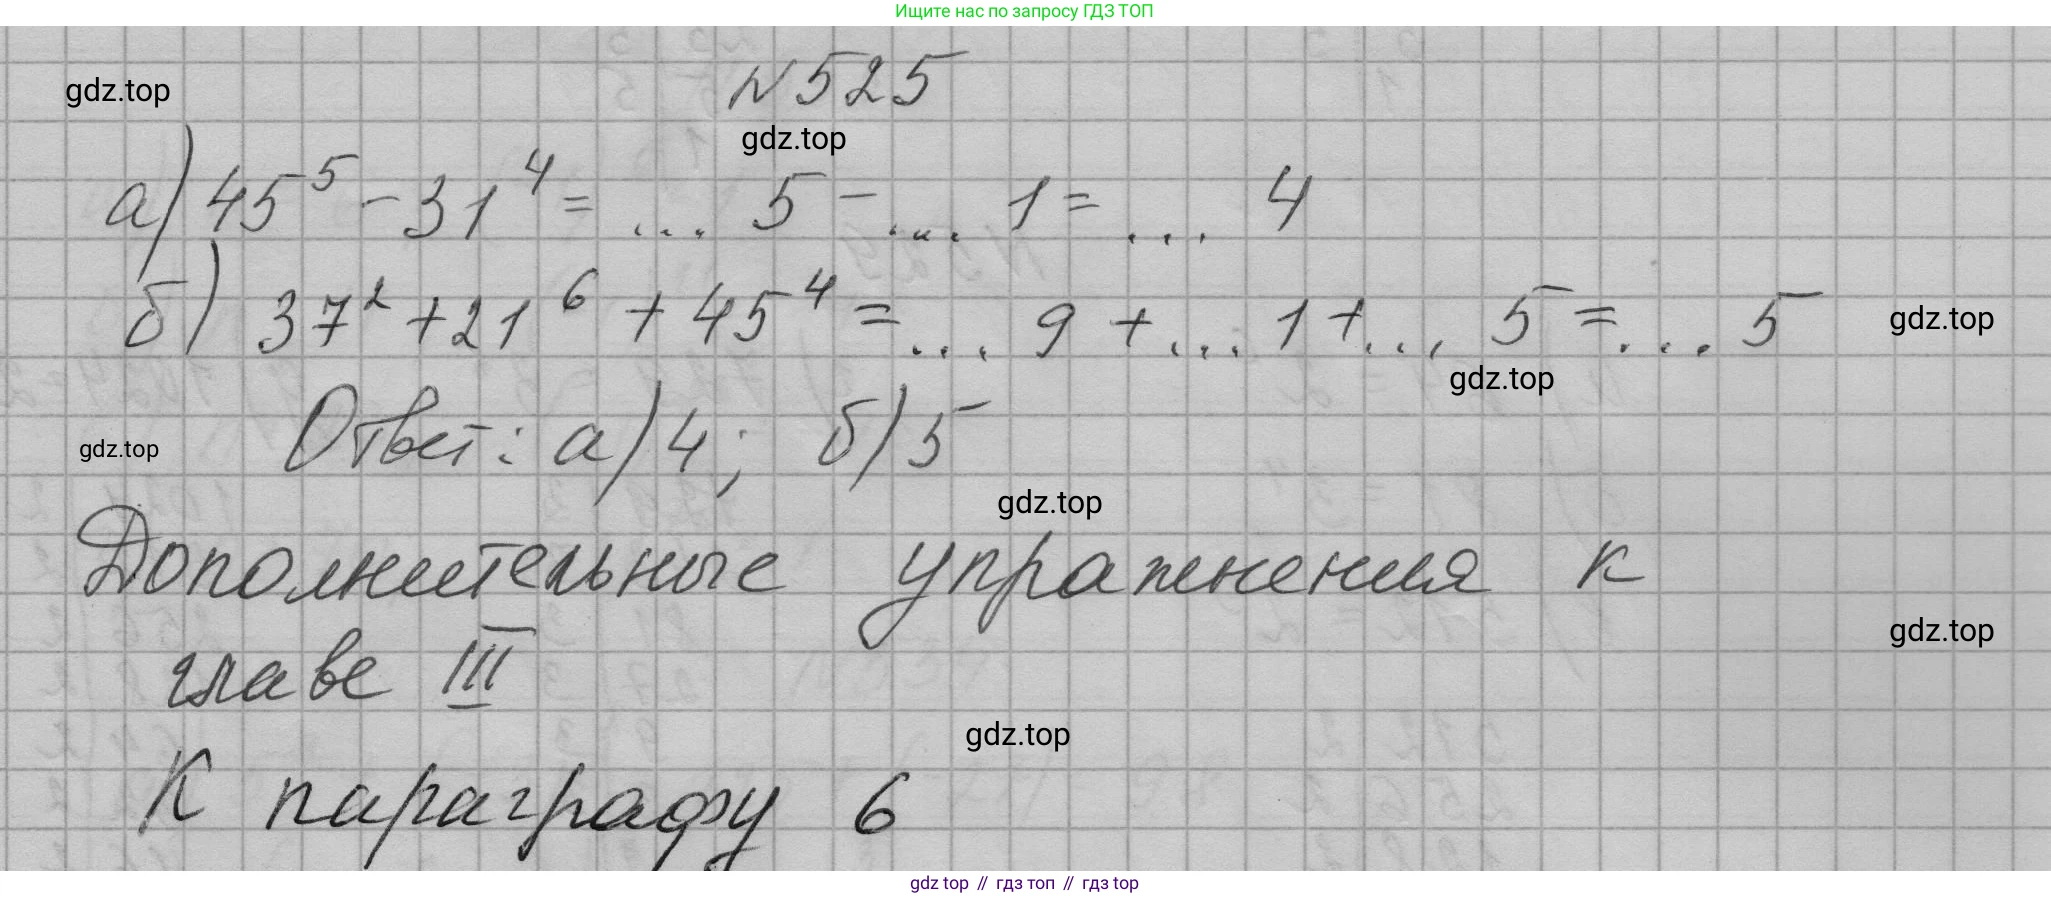 Ищите нас по запросу ГДЗ ТОП
№525
gdz.top
gdz.top
а) 45⁵ - 31⁴ = ... 5 - ... 1 = ... 4
б) 37² + 21⁶ + 45⁴ = ... 9 + ... 1 + ... 5 = ... 5
gdz.top
gdz.top
Ответ: а) 4; б) 5
gdz.top
gdz.top
Дополнительные упражнения к
gdz.top
главе III
gdz.top
К параграфу 6
gdz top // гдз топ // гдз top